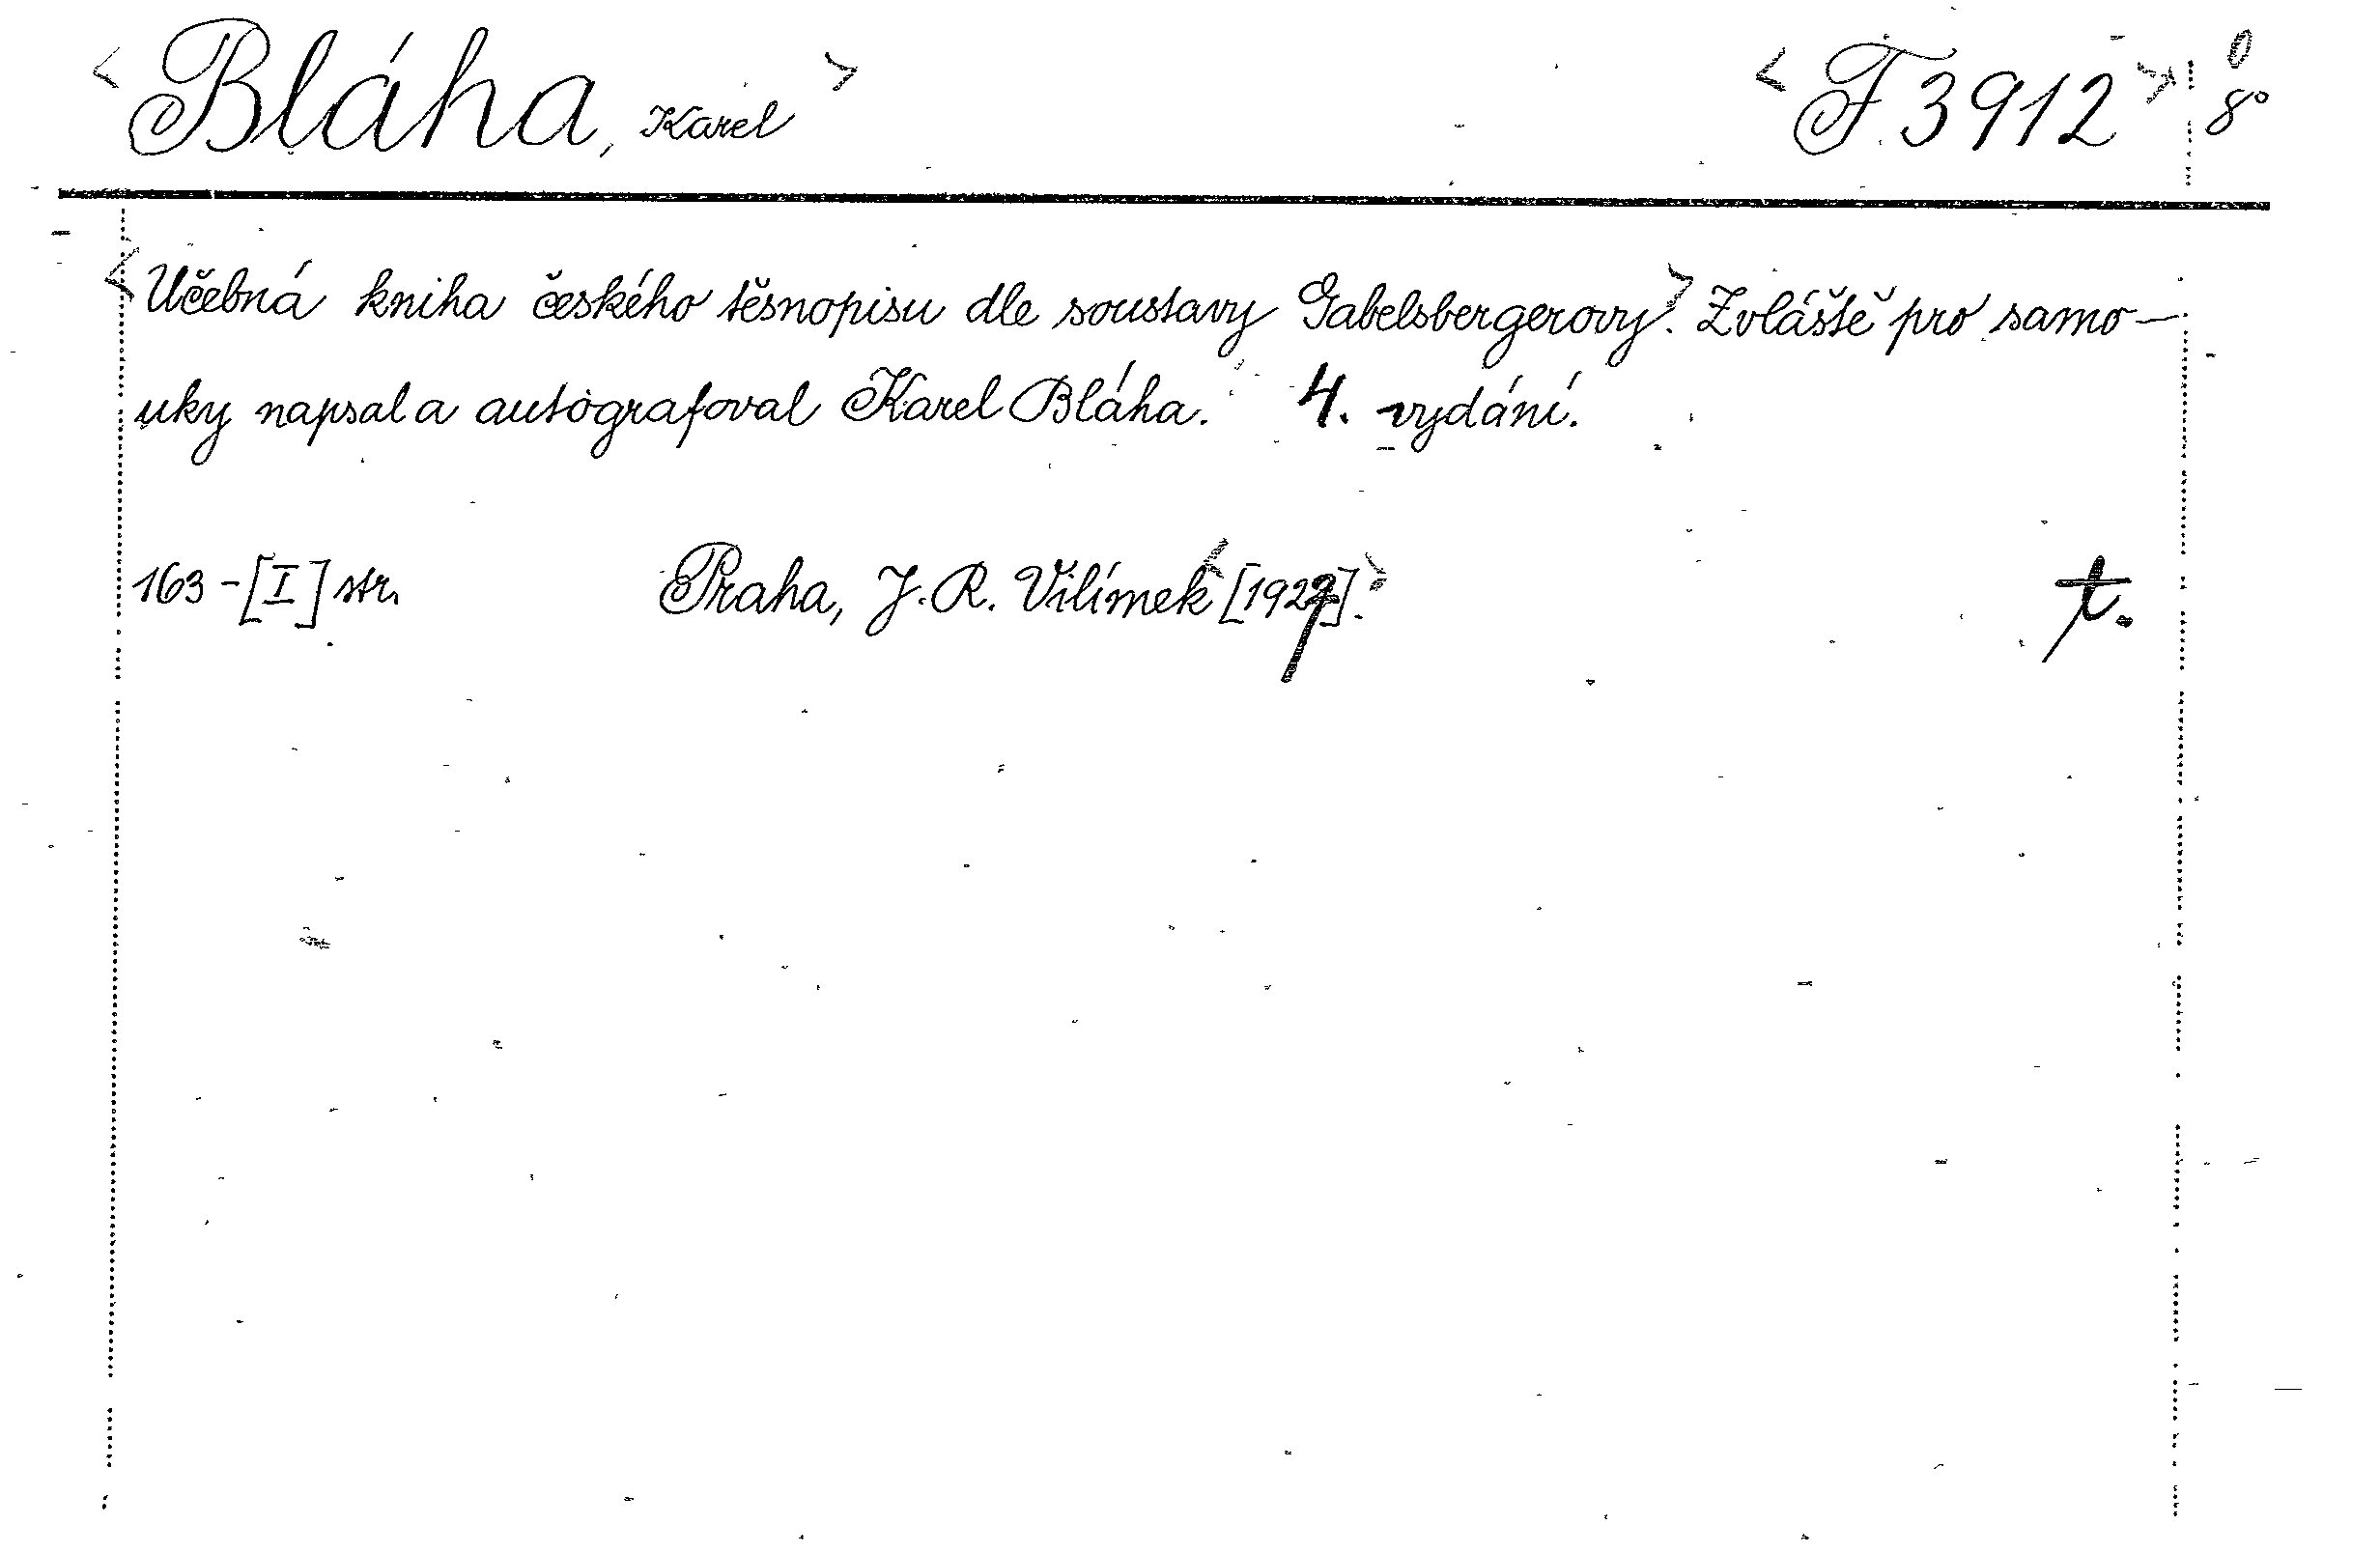 <Bláha, Karel> <F 3912> 0 8°
<Učebná kniha českého těsnopisu dle soustavy Gabelsbergerovy>. Zvláště pro samo-
uky napsal a autografoval Karel Bláha. 4. vydání.
163-[I] str. Praha, J. R. Vilímek <[1927].> t.